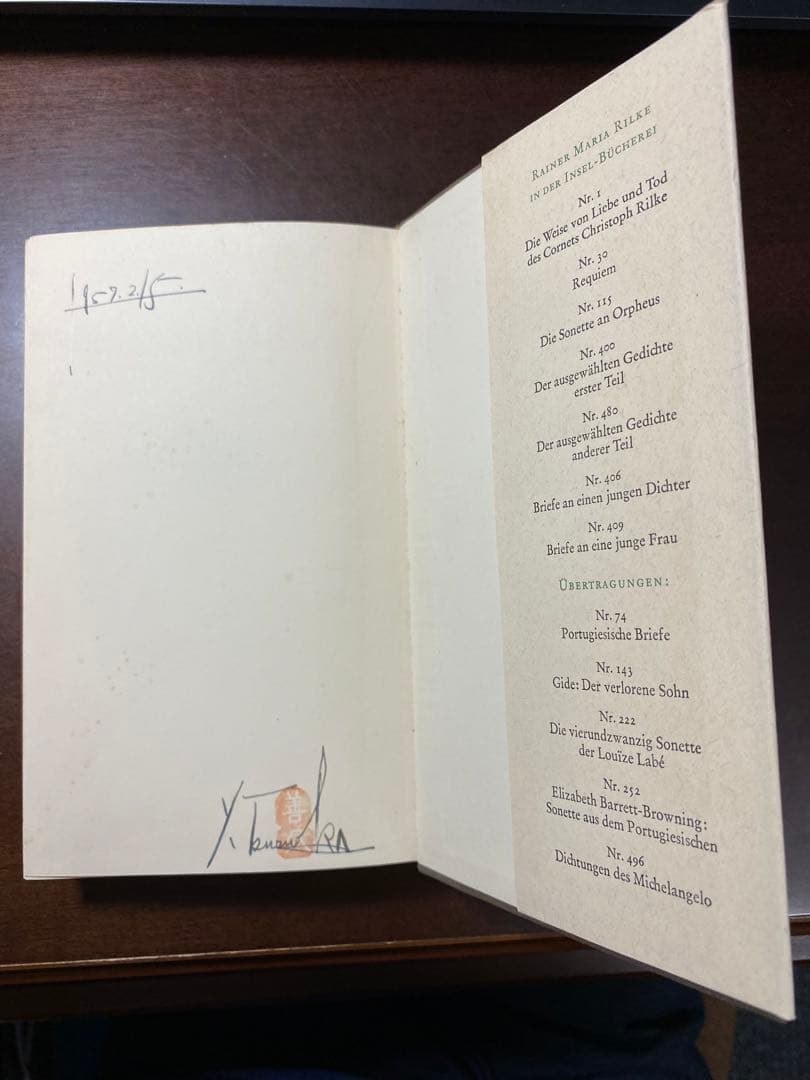 1959.2.15.
Y. Tanaka
善
RAINER MARIA RILKE
IN DER INSEL-BÜCHEREI
Nr. 1
Die Weise von Liebe und Tod
des Cornets Christoph Rilke
Nr. 30
Requiem
Nr. 115
Die Sonette an Orpheus
Nr. 400
Der ausgewählten Gedichte
erster Teil
Nr. 480
Der ausgewählten Gedichte
anderer Teil
Nr. 406
Briefe an einen jungen Dichter
Nr. 409
Briefe an eine junge Frau
ÜBERTRAGUNGEN:
Nr. 74
Portugiesische Briefe
Nr. 143
Gide: Der verlorene Sohn
Nr. 222
Die vierundzwanzig Sonette
der Louïze Labé
Nr. 252
Elizabeth Barrett-Browning:
Sonette aus dem Portugiesischen
Nr. 496
Dichtungen des Michelangelo